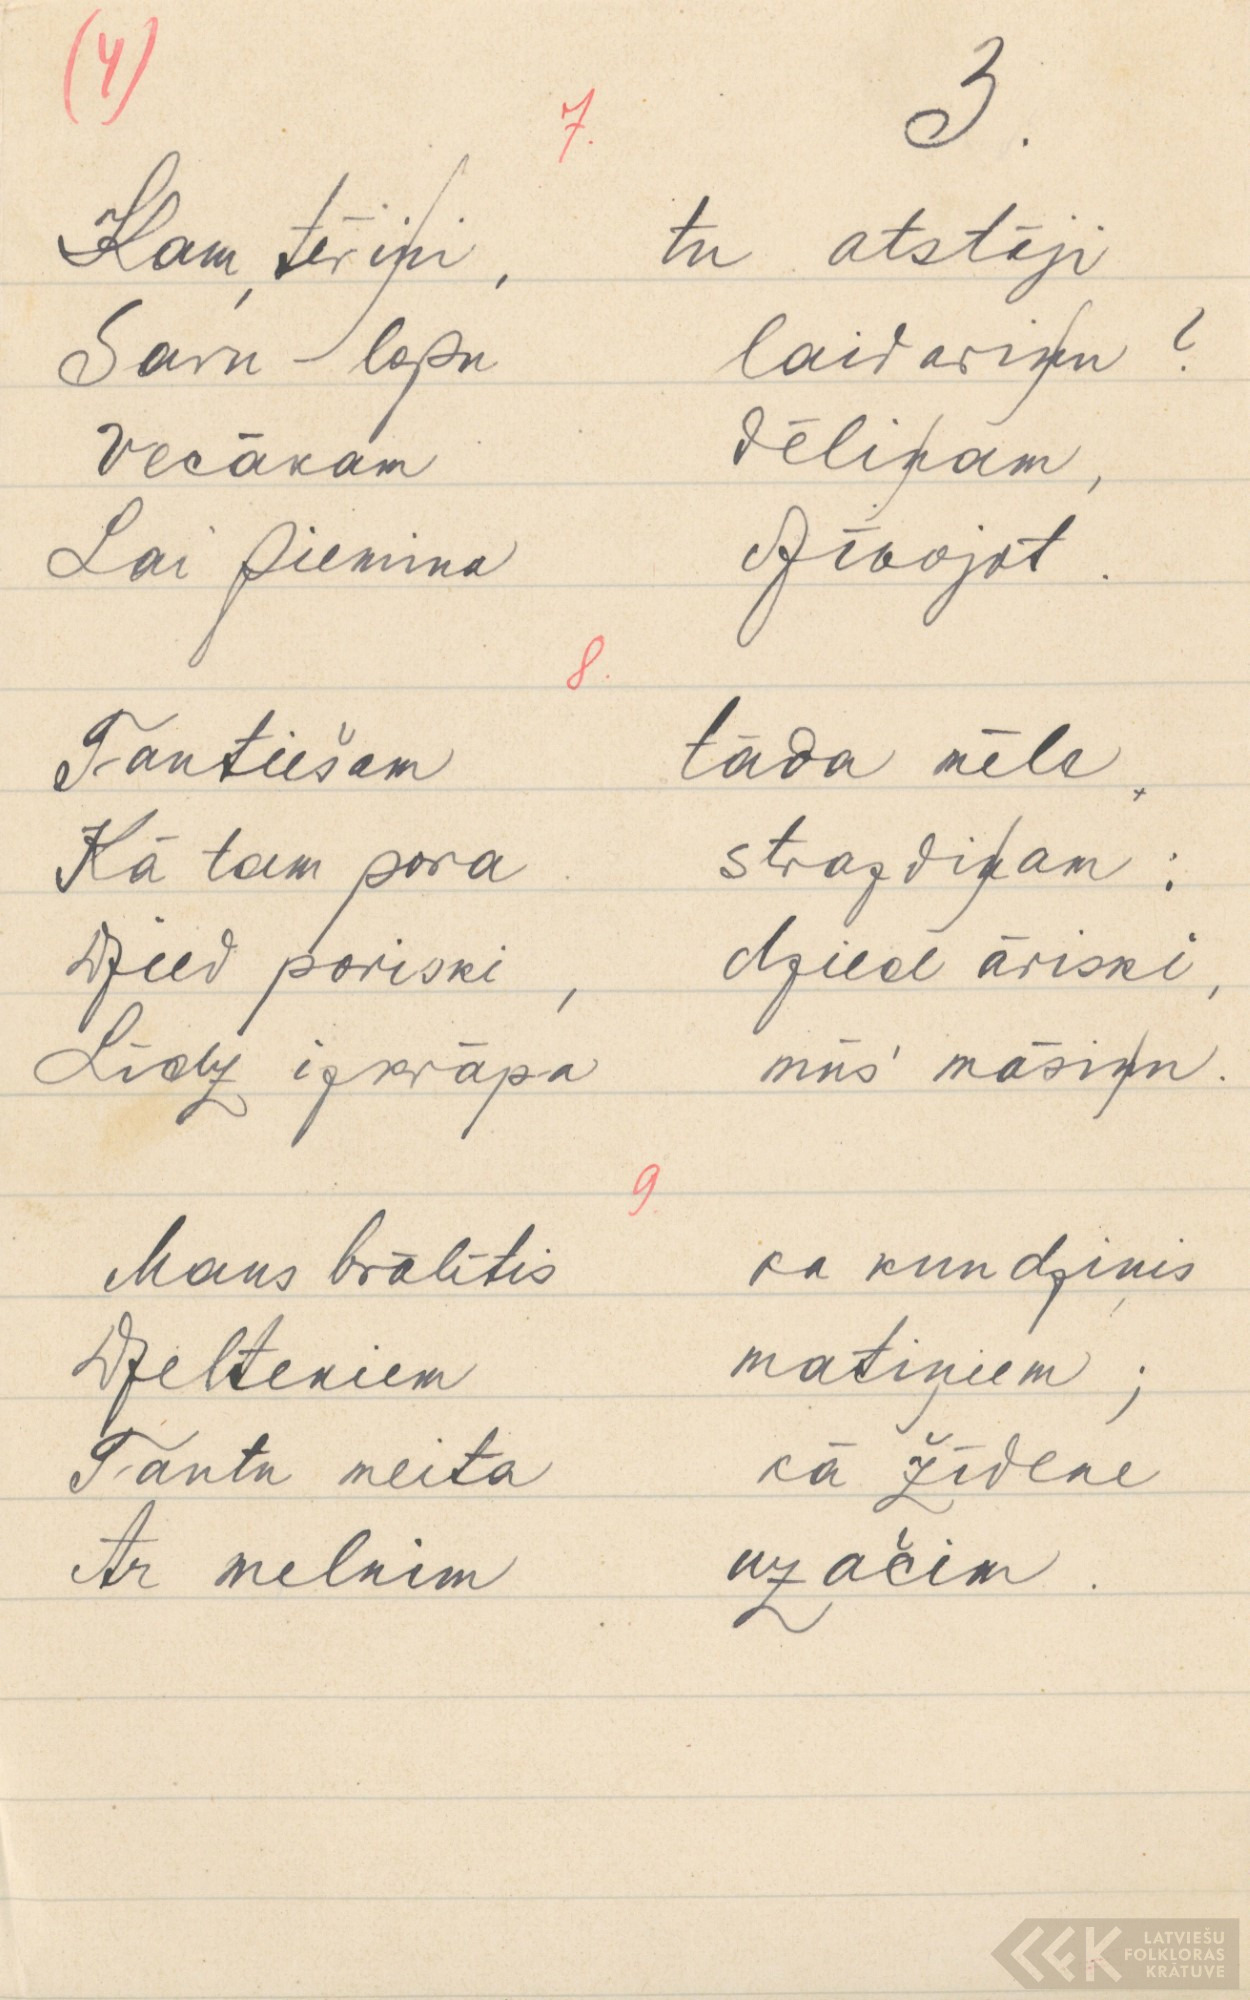 (4)
7. 3.
Kam, tēriņi, tu atstāji
Savu lopu laidariņu?
Vecākam dēliņam,
Lai piemina dzīvojot.
8.
Tautiešam tāda mēle,
Kā tam pora strazdiņam:
Dzied poriski, dzied āriski,
Līdz izkrāpa mūs' māsiņu.
9.
Mans brālītis ka kundziņis
Dzelteniem matiņiem;
Tautu meita kā žīdene
Ar melnim uzačim.
LATVIEŠU
FOLKLORAS
KRĀTUVE